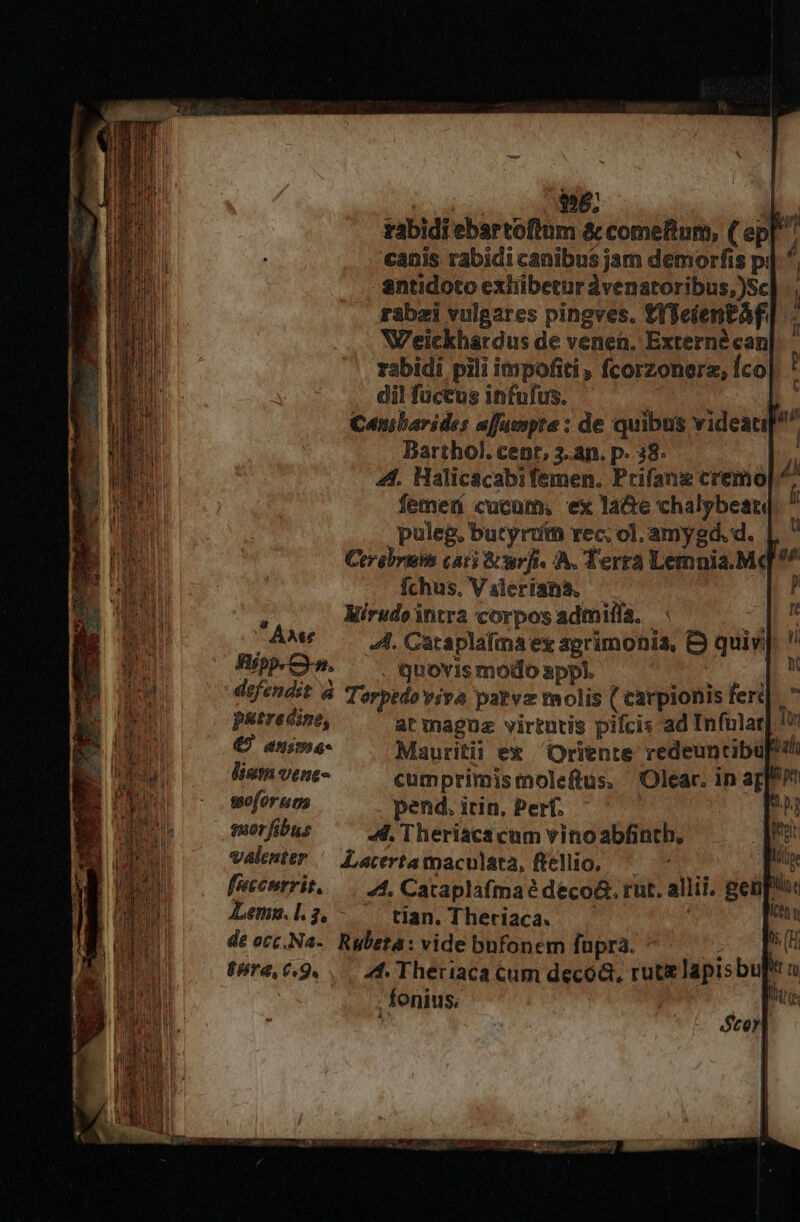 rabidi ebar toſtum & comeſtum, ( ep
canis rabidi canibus jam demorſis p
antidoto exhibetur à venatoribus,) Sc
rabæi vulgares pingves.
Weickhardus de venen. Externè can
rabidi pili impoſiti, ſcorzoneræ, ſco
dil ſuccus infuſus.
Cantharides aſſumptæ : de quibus videatu
Barthol. cent. 3. an. p. 38.
A. Halicacabi ſemen. Ptiſanæ cremo
ſemen cucum, ex lacte chalybeat
puleg. butyrum rec. ol. amygd. d.
Cerebrum cati & urſi. A. Terra Lemnia. M
ſchus. Valeriana.
Hirudo intra corpos admiſſa.
A. Cataplaſma ex agrimonia, & quiv
Hipp. & n. quovis modo appl.
defendit à Torpedo viva parvæ molis ( carpionis fer
putredine, at magnæ virtutis piſcis ad Inſular
& anima- Mauritii ex Oriente redeuntibu
lium vene- cumprimis moleſtus. Olear. in ap
noſorum pend. itin. Perſ.
morſibus A. Theriaca cum vino abſinth.
valenter Lacerta maculata, ſtellio.
ſuccurrit. A. Cataplaſma è decoct. rut. allii. gen
Lemn. l. 3, tian. Theriaca.
de occ. Na- Rubeta : vide bufonem ſupra.
tura, c. 9. A. Theriaca cum decoct. rutæ lapis bu
fonius.
Scor